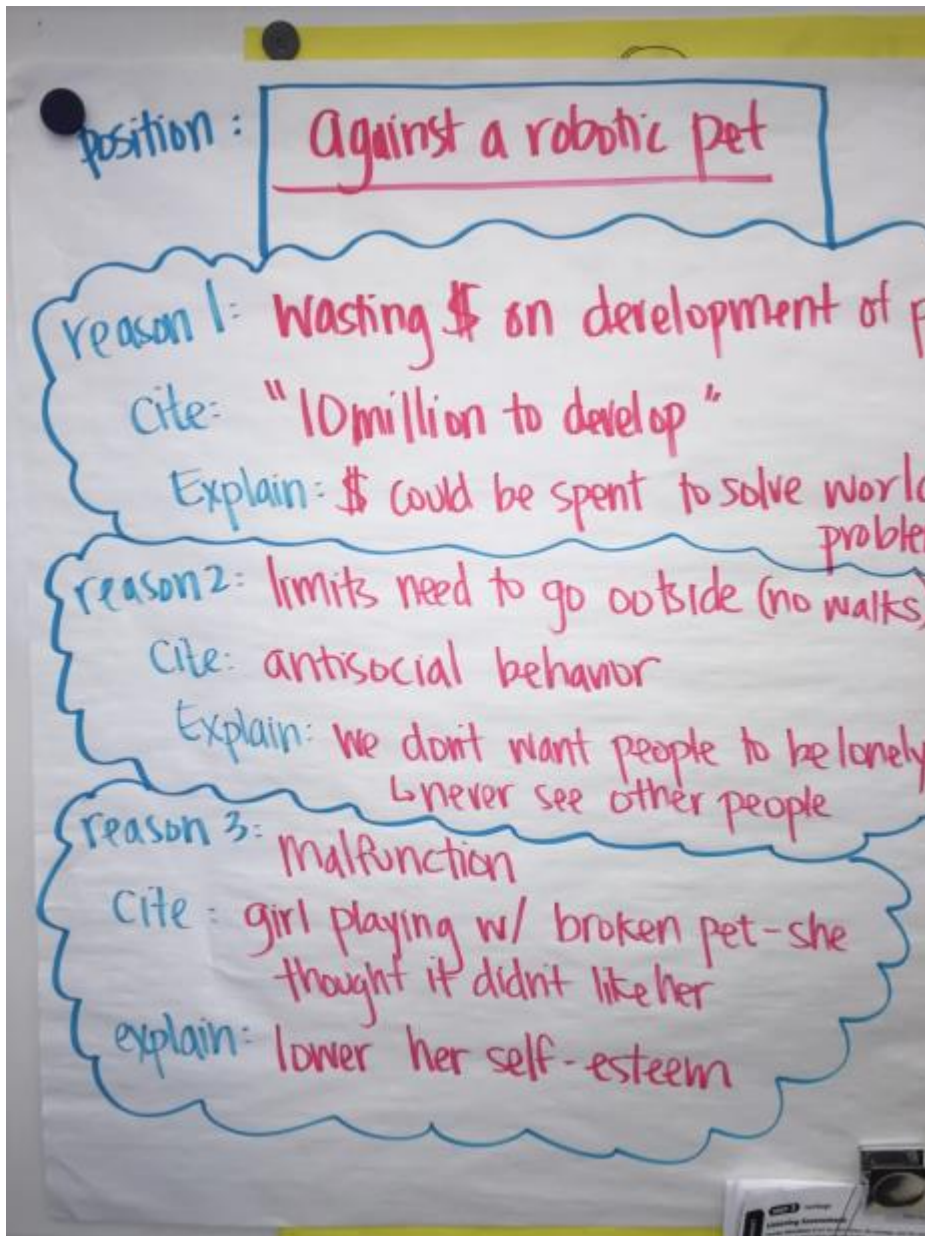 position: against a robotic pet
reason 1: Wasting $ on development of
Cite: "10 million to develop"
Explain: $ could be spent to solve
reason 2: limits need to go outside (no walks)
Cite: antisocial behavior
Explain: we don't want people to be lonely
↳ never see other people
reason 3: Malfunction
Cite: girl playing w/ broken pet - she
thought it didn't like her
explain: lower her self-esteem
Listening Assessment